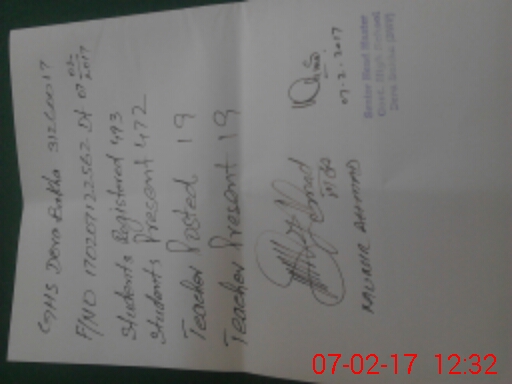 GHS Dera Bakha 31260017
F/NO 170207122562 Dt 07-02-2017
Students Registered 493
Students Present 472
Teacher Posted 19
Teacher Present 19
MUNIR AHMAD
07-2-2017
Senior Head Master
Govt. High School
Dera Bakha (BWP)
07-02-17 12:32